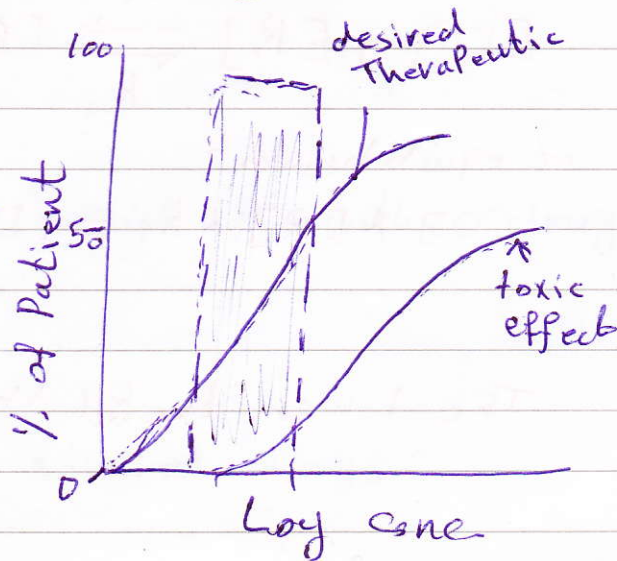 desired
Therapeutic
100
50
% of Patient
toxic
effect
0
Log conc